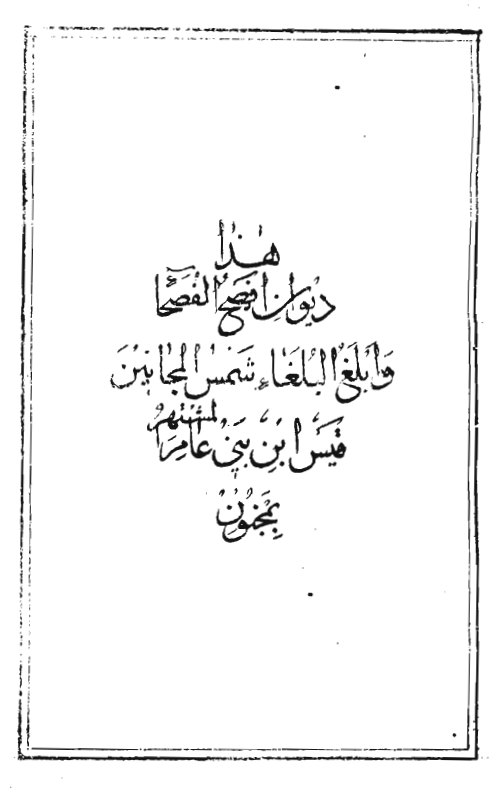 هٰذا
دِيْوانِ افْصَحُ الفُصَحَآ
وَاَبْلَغُ الْبُلَغَاءِ شَمْسُ الْمَجٰانِيْنَ
قَيسَ ابْنِ بَنِيْ عامِرَ المُشْتَهِرُ
بِمَجْنُوْنْ